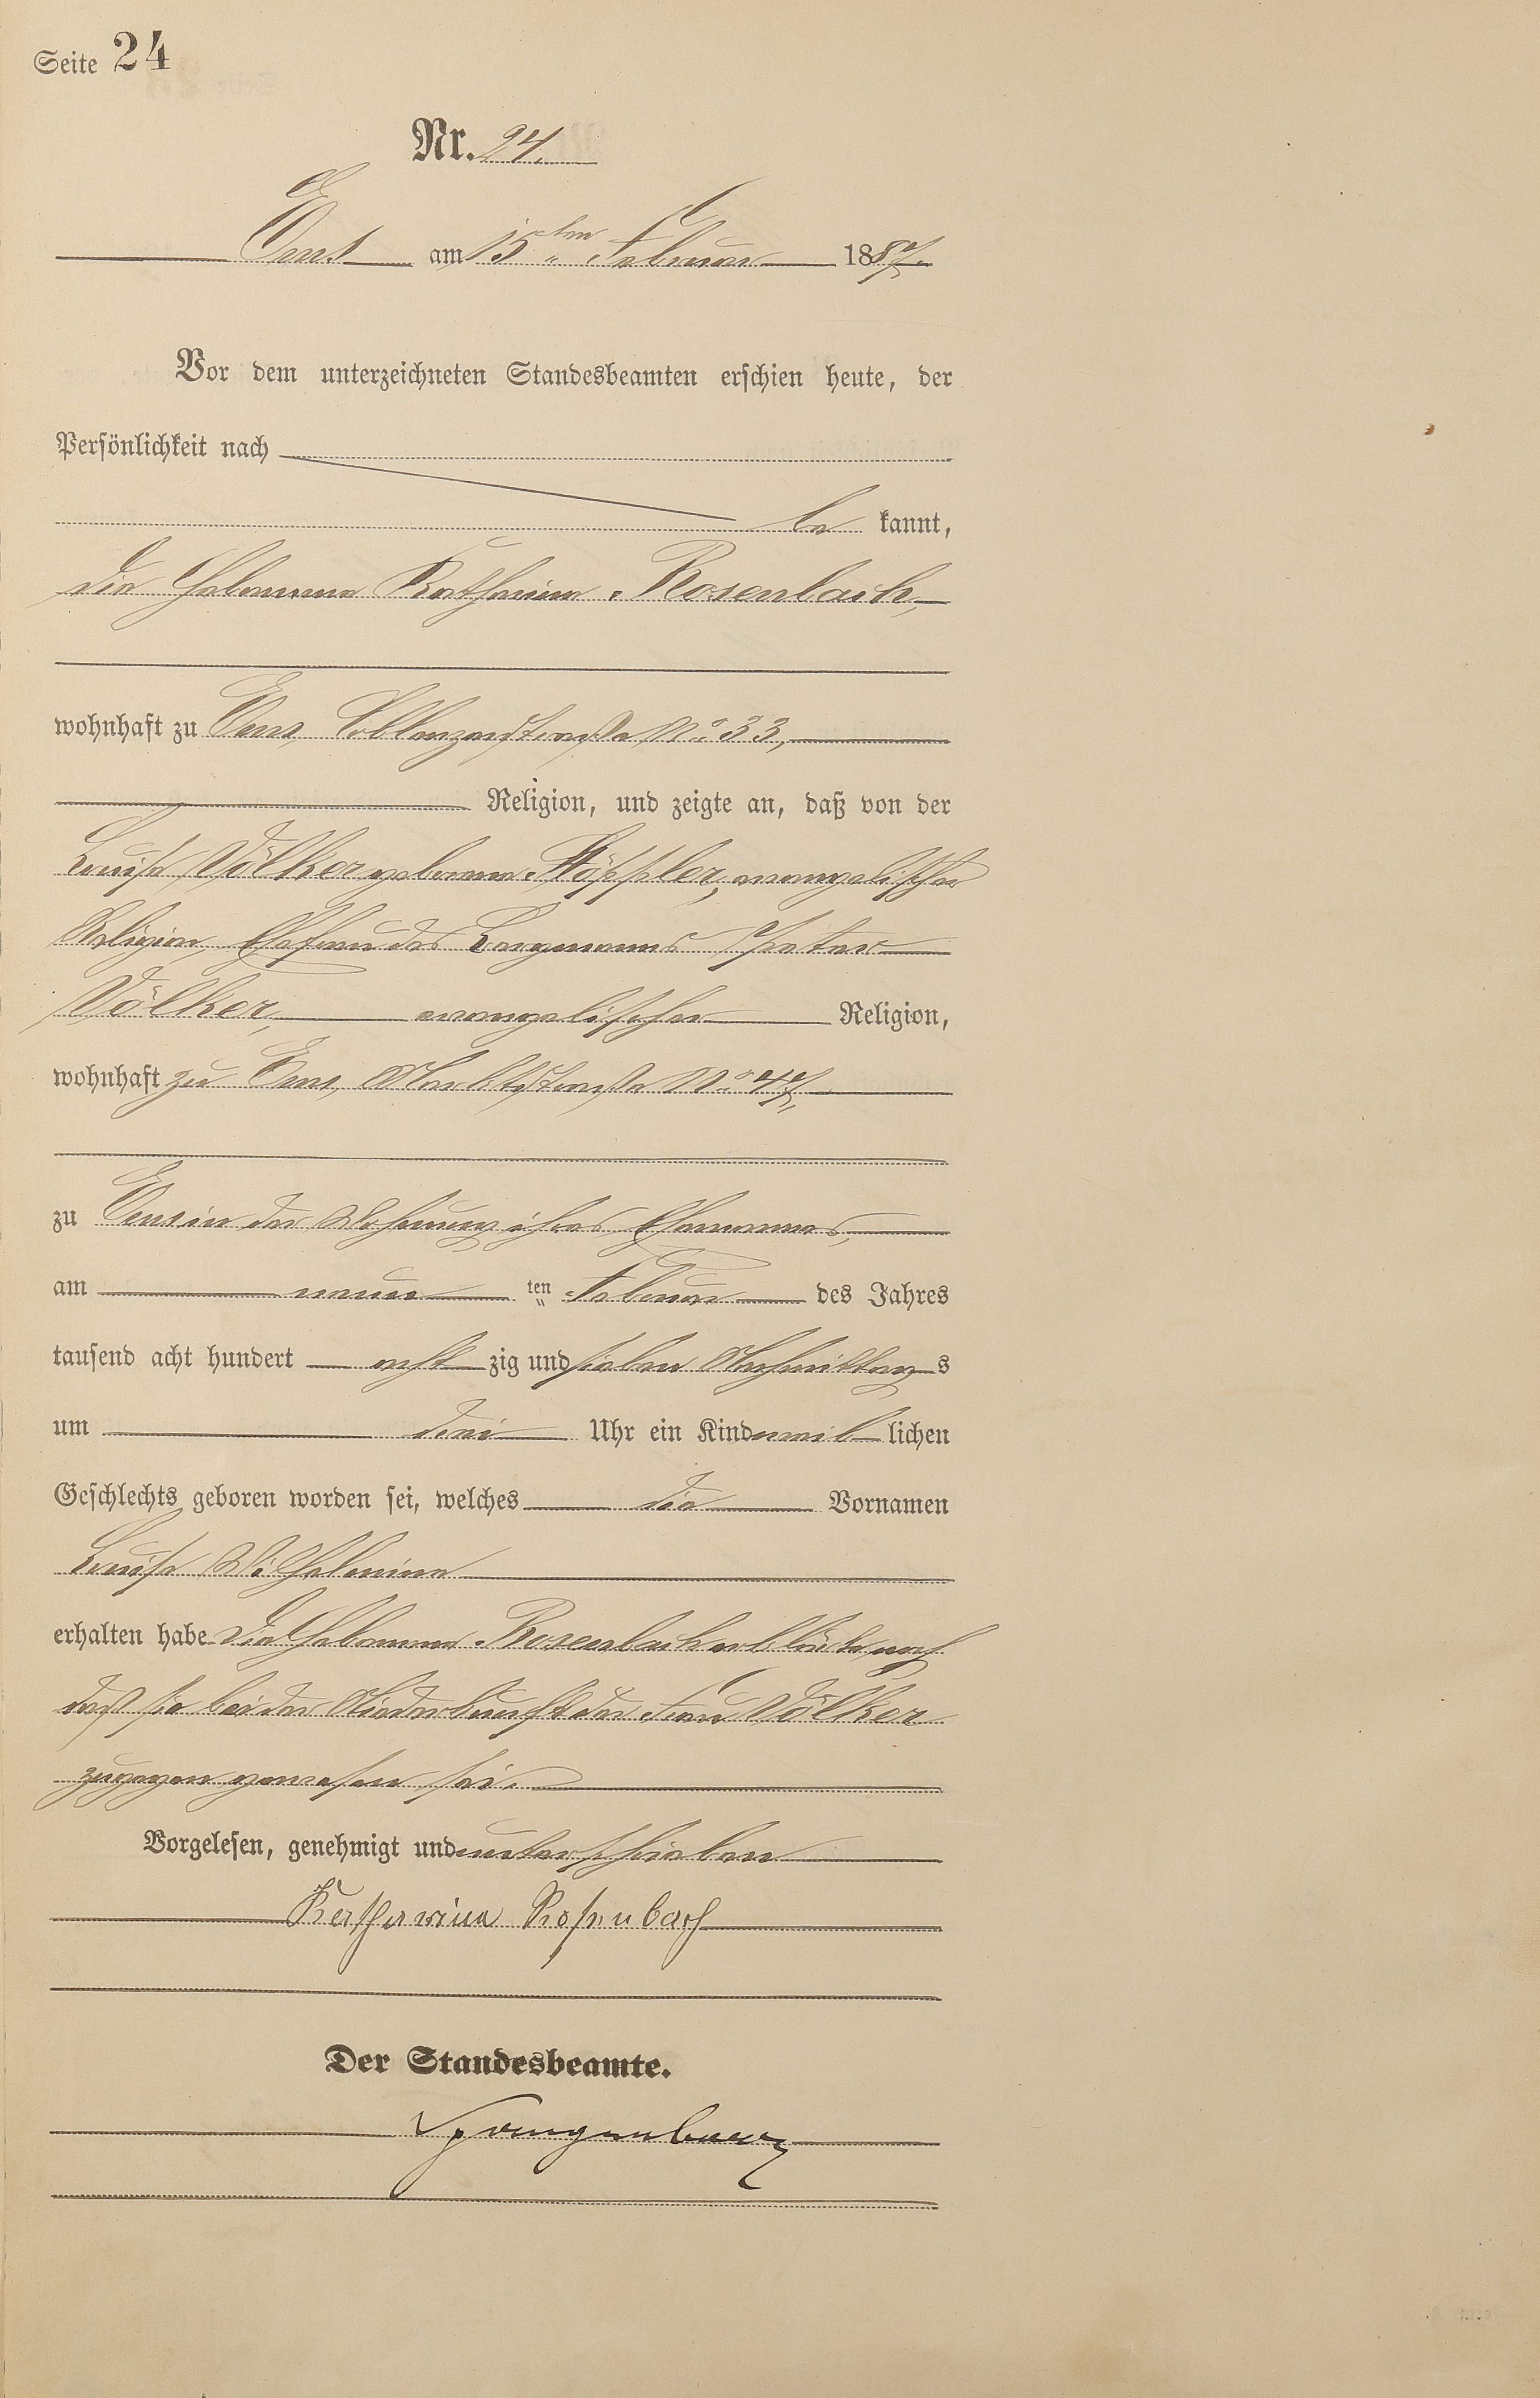 Seite 24
Nr. 24.
Ems am 15ten Februar 1887.
Vor dem unterzeichneten Standesbeamten erschien heute, der
Persönlichkeit nach
be kannt,
die Hebamme Katharina Rosenbach,
wohnhaft zu Ems, Coblenzerstraße No 33,
Religion, und zeigte an, daß von der
Louise Völker geborene Höppler, evangelischer
Religion, Ehefrau des Bergmanns Peter
Völker, evangelischer Religion,
wohnhaft zu Ems, Marktstraße No 47,
zu Ems in der Wohnung ihres Ehemannes,
am neun ten Februar des Jahres
tausend acht hundert acht zig und sieben Nachmittag s
um drei Uhr ein Kind weib lichen
Geschlechts geboren worden sei, welches die Vornamen
Louise Wilhelmine
erhalten habe. Die Hebamme Rosenbach erklärte noch
daß sie bei der Niederkunft der Frau Völker
zugegen gewesen sei.
Vorgelesen, genehmigt und unterschrieben
Katharina Rosenbach
Der Standesbeamte.
Spangenberg